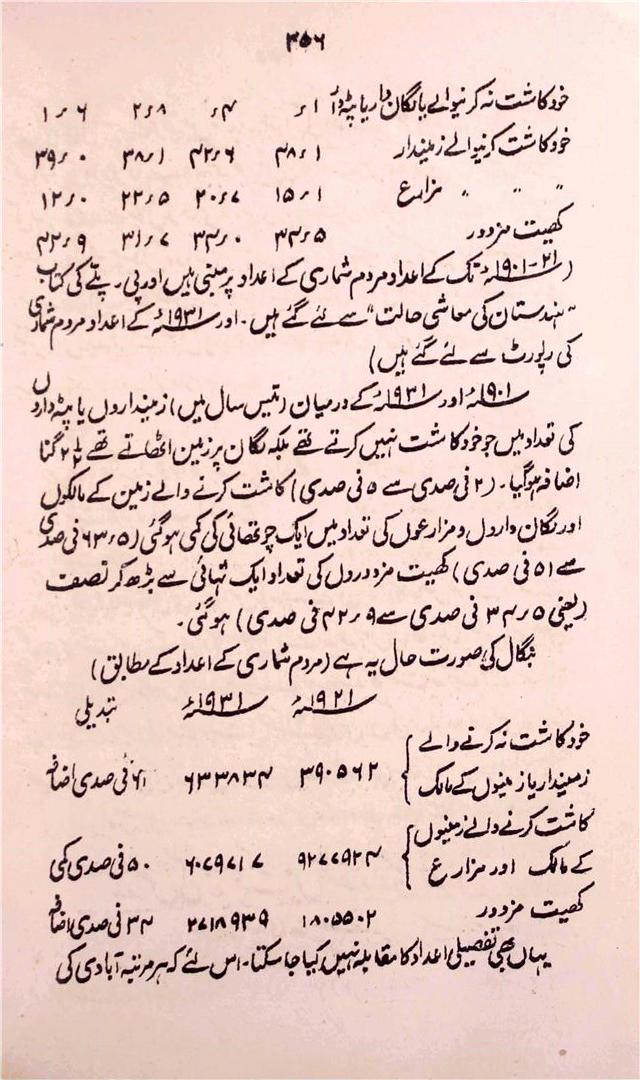 ۴۵۶
خود کاشت نہ کرنیوالے یا لگان دار یا پٹہ دار ۱ء ۴ء ۲ء۸ ۱ء۶
خود کاشت کرنیوالے زمیندار ۴۸ء۱ ۴۲ء۶ ۳۸ء۱ ۳۹ء۰
" " " مزارع ۱۵ء۱ ۲۰ء۷ ۲۲ء۵ ۱۲ء۰
کھیت مزدور ۳۴ء۵ ۳۴ء۰ ۳۱ء۷ ۴۲ء۹
(۲۱-۱۹۰۱ء تک کے اعداد مردم شماری کے اعداد پر مبنی ہیں اور پی۔ پلے کی کتاب
"ہندستان کی معاشی حالت" سے لئے گئے ہیں۔ اور ۱۹۳۱ء کے اعداد مردم شماری
کی رپورٹ سے لئے گئے ہیں)
۱۹۰۱ء اور ۱۹۳۱ء کے درمیان (تیس سال میں) زمینداروں یا پٹہ داروں
کی تعداد میں جو خود کاشت نہیں کرتے تھے بلکہ لگان پر زمین اٹھاتے تھے ۲½ گنا
اضافہ ہو گیا۔ (۲ فی صدی سے ۵ فی صدی) کاشت کرنے والے زمین کے مالکوں
اور لگان داروں و مزارعوں کی تعداد میں ایک چوتھائی کی کمی ہو گئی (۶۳ء۵ فی صدی
سے ۵۱ فی صدی) کھیت مزدوروں کی تعداد ایک تہائی سے بڑھ کر نصف
(یعنی ۳۴ء۵ فی صدی سے ۴۲ء۹ فی صدی) ہو گئی۔
بنگال کی صورت حال یہ ہے (مردم شماری کے اعداد کے مطابق)
۱۹۲۱ء ۱۹۳۱ء تبدیلی
خود کاشت نہ کرنے والے
زمیندار یا زمینوں کے مالک ۳۹۰۵۶۲ ۶۳۳۸۳۴ ۶۱ فی صدی اضافہ
کاشت کرنے والے زمینوں
کے مالک اور مزارع ۹۲۷۷۹۲۴ ۶۰۷۹۷۱۷ ۵۰ فی صدی کمی
کھیت مزدور ۱۸۰۵۵۰۲ ۲۷۱۸۹۳۹ ۳۴ فی صدی اضافہ
یہاں بھی تفصیلی اعداد کا مقابلہ نہیں کیا جا سکتا۔ اس لئے کہ ہر مرتبہ آبادی کی